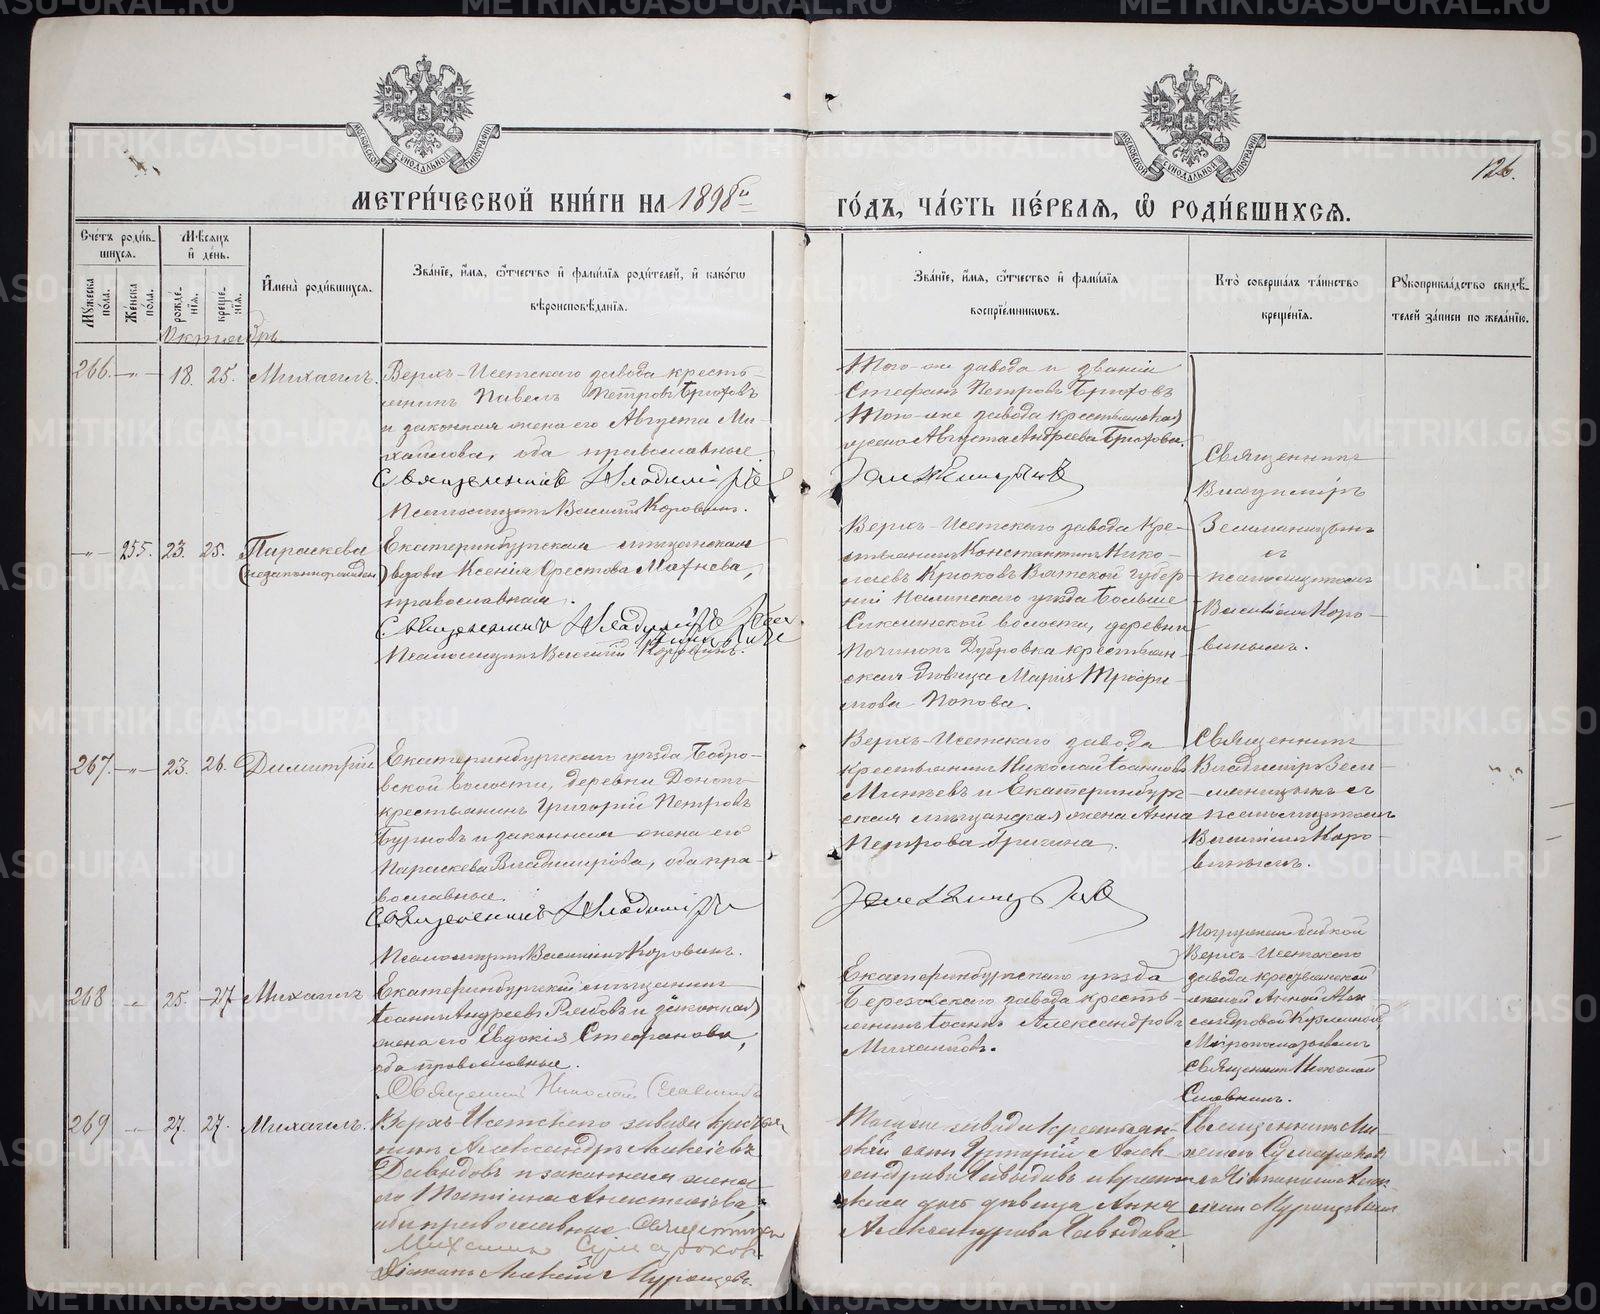 126.
МЕТРИ́ЧЕСКОЙ КНИ́ГИ НА 1898й ГО́ДЪ, ЧА́СТЬ ПЕ́РВАЯ, Ѡ РОДИ́ВШИХСЯ.
Сче́тъ роди́вшихся.
Му́жеска по́ла.
Же́нска по́ла.
Мѣ́сяцъ и де́нь.
рожде́нія.
креще́нія.
Имена̀ роди́вшихся.
Зва́ніе, и́мя, о́тчество и фами́лія роди́телей, и како́гѡ
вѣроисповѣ́данія.
Зва́ніе, и́мя, о́тчество и фами́лія
воспріе́мникѡвъ.
Кто̀ соверша́лъ та́инство
креще́нія.
Рукоприкла́дство свидѣ́-
телей за́писи по жела́нію.
Октябрь
266. -"- 18. 25. Михаилъ.
Верхъ-Исетскаго завода кресть-
янинъ Павелъ Петровъ Брюховъ
и законная жена его Августа Ми-
хайлова, оба православные.
Священникъ Владиміръ
Псаломщикъ Василій Коровинъ.
Того-же завода и званія
Стефанъ Петровъ Брюховъ
Того-же завода крестьянская
жена Августа Андреева Брюхова.
Земляницынъ
Священникъ
Владиміръ
Земляницынъ
съ
псаломщикомъ
Василіемъ Коро-
винымъ.
-"- 255. 23. 25. Параскева
(незаконнорожден)
Екатеринбургская мѣщанская
вдова Ксенія Орестова Матнева,
православная.
Священникъ Владиміръ Земляницынъ
Псаломщикъ Василій Коровинъ.
Верхъ-Исетскаго завода кре-
стьянинъ Константинъ Нико-
лаевъ Крюковъ Вятской губер-
ніи Нолинскаго уѣзда Больше
Ситминской волости, деревни
Починокъ Дубровка крестьян-
ская дѣвица Марія Трофи-
мова Попова.
267. -"- 23. 26. Димитрій
Екатеринбургскаго уѣзда Бобро-
вской волости, деревни
крестьянинъ Григорій Петровъ
и законная жена его
Параскева Владимирова, оба пра-
вославные.
Священникъ Владиміръ
Псаломщикъ Василій Коровинъ.
Верхъ-Исетскаго завода
крестьянинъ Николай Іоанновъ
Минѣевъ и Екатеринбург-
ская мѣщанская жена Анна
Петрова
Земляницынъ
Священникъ
Владиміръ Зем-
ляницынъ съ
псаломщикомъ
Василіемъ Коро-
винымъ.
268 " 25. -27 Михаилъ
Екатеринбургскій мѣщанинъ
Іоаннъ Андреевъ и законная
жена его Евдокія Стефанова,
оба православные.
Священникъ Николай
Екатеринбургскаго уѣзда
Березовскаго завода кресть-
янинъ Іоаннъ Александровъ
Михайловъ.
Погруженъ бабкой
Верхъ-Исетскаго
завода крестьянской
женой Анной Алек-
сандровой Кузминой
Мѵропомазовалъ
священникъ Николай
269 " 27. 27. Михаилъ.
Верхъ-Исетскаго завода крестья-
нинъ Александръ Алексіевъ
Давыдовъ и законная жена
его Татіана Анастасіева
оба православные Священникъ
Михаилъ Сумароковъ
Діаконъ Алексій
Того же завода крестьян-
скій сынъ Григорій Алек-
сандровъ Давыдовъ и крестьян-
ская дочь дѣвица Анна
Александрова Давыдова
Священникъ Ми-
хаилъ Сумароковъ